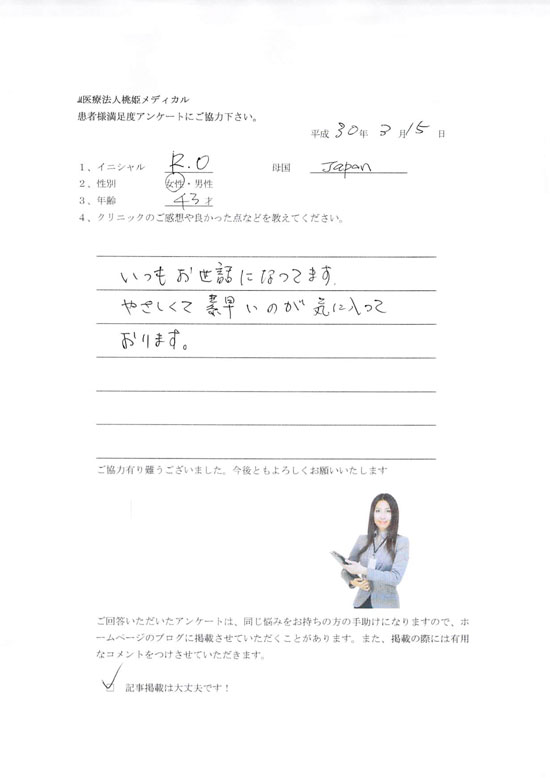 医療法人桃姫メディカル
患者様満足度アンケートにご協力下さい。
平成 30年 3月15日
1、イニシャル R.O 母国 Japan
2、性別 女性・男性
3、年齢 43才
4、クリニックのご感想や良かった点などを教えてください。
いつもお世話になってます.
やさしくて素早いのが気に入って
おります。
ご協力有り難うございました。今後ともよろしくお願いいたします
ご回答いただいたアンケートは、同じ悩みをお持ちの方の手助けになりますので、ホ
ームページのブログに掲載させていただくことがあります。また、掲載の際には有用
なコメントをつけさせていただきます。
記事掲載は大丈夫です！